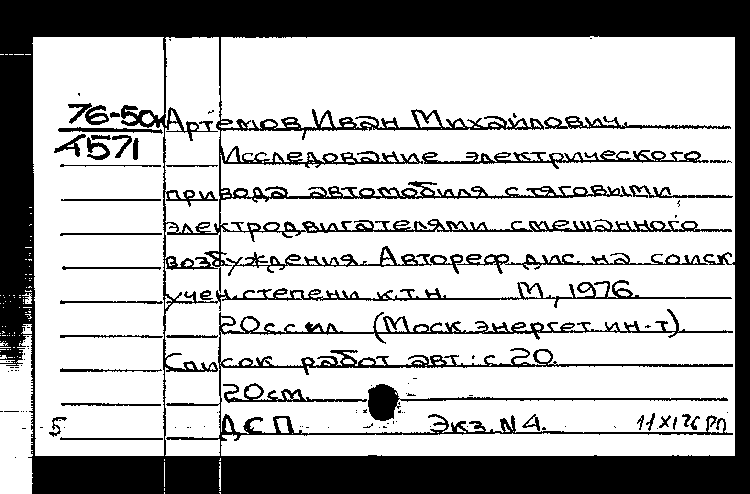 76-50к Артемов, Иван Михайлович.
А571 Исследование электрического
привода автомобиля с тяговыми
электродвигателями смешанного
возбуждения. Автореф. дис. на соиск.
учен. степени к.т.н. М., 1976.
20с. с ил. (Моск. энергет. ин-т).
Список работ авт.: с. 20.
20см.
5 ДСП. Экз. N4. 11 XI 76